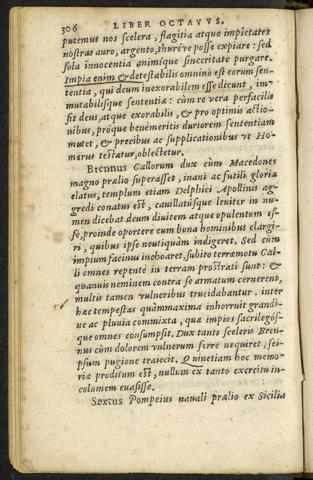 306 LIBER OCTAVVS.
putemus nos scelera, flagitia atque impietates
nostras auro, argento, thuréve posse expiare: sed
sola innocentia animique synceritate purgare.
Impia enim & detestabilis omninò est eorum sen-
tentia, qui deum inexorabilem esse dicunt, im-
mutabilisque sententiæ: cùm re vera perfacilis
sit deus, atque exorabilis, & pro optimis actio-
nibus, próque benèmeritis duriorem sententiam
mutet, & precibus ac supplicationibus vt Ho-
merus testatur, oblectetur.
Brennus Gallorum dux cùm Macedones
magno prælio superasset, inani ac futili gloria
elatus, templum etiam Delphici Apollinis ag-
gredi conatus est, cauillatúsque leuiter in nu-
men dicebat deum diuitem atque opulentum es-
se, proinde oportere eum bona hominibus elargi-
ri, quibus ipse neutiquàm indigeret. Sed cùm
impium facinus inchoaret, subito terræmotu Gal-
li omnes repentè in terram prostrati sunt: &
quanuis neminem contra se armatum cernerent,
multis tamen vulneribus trucidabantur. inter
hæc tempestas quàmmaxima inhorruit grandi-
ne ac pluuia commixta, quæ impios sacrilegós-
que omnes consumpsit. Dux tanti sceleris Bren-
nus cùm dolorem vulnerum ferre nequiret, sei-
psum pugione traiecit. Quinetiam hoc memo-
ria proditum est, nullum ex tanto exercitu in-
columem euasisse.
Sextus Pompeius nauali prælio ex Sicilia